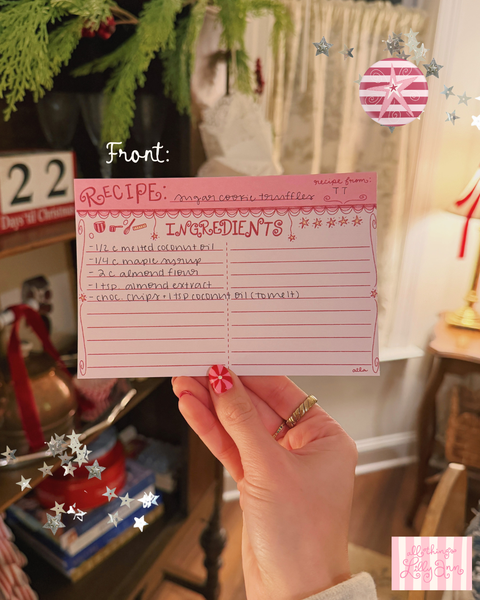 Front:
22
Days 'til Christmas
RECIPE: sugar cookie truffles
recipe from:
TT
INGREDIENTS
- 1/2 c. melted coconut oil
- 1/4 c. maple syrup
- 2 c. almond flour
- 1 tsp. almond extract
- choc. chips + 1 tsp coconut oil (to melt)
atla
all things
Lilly Ann